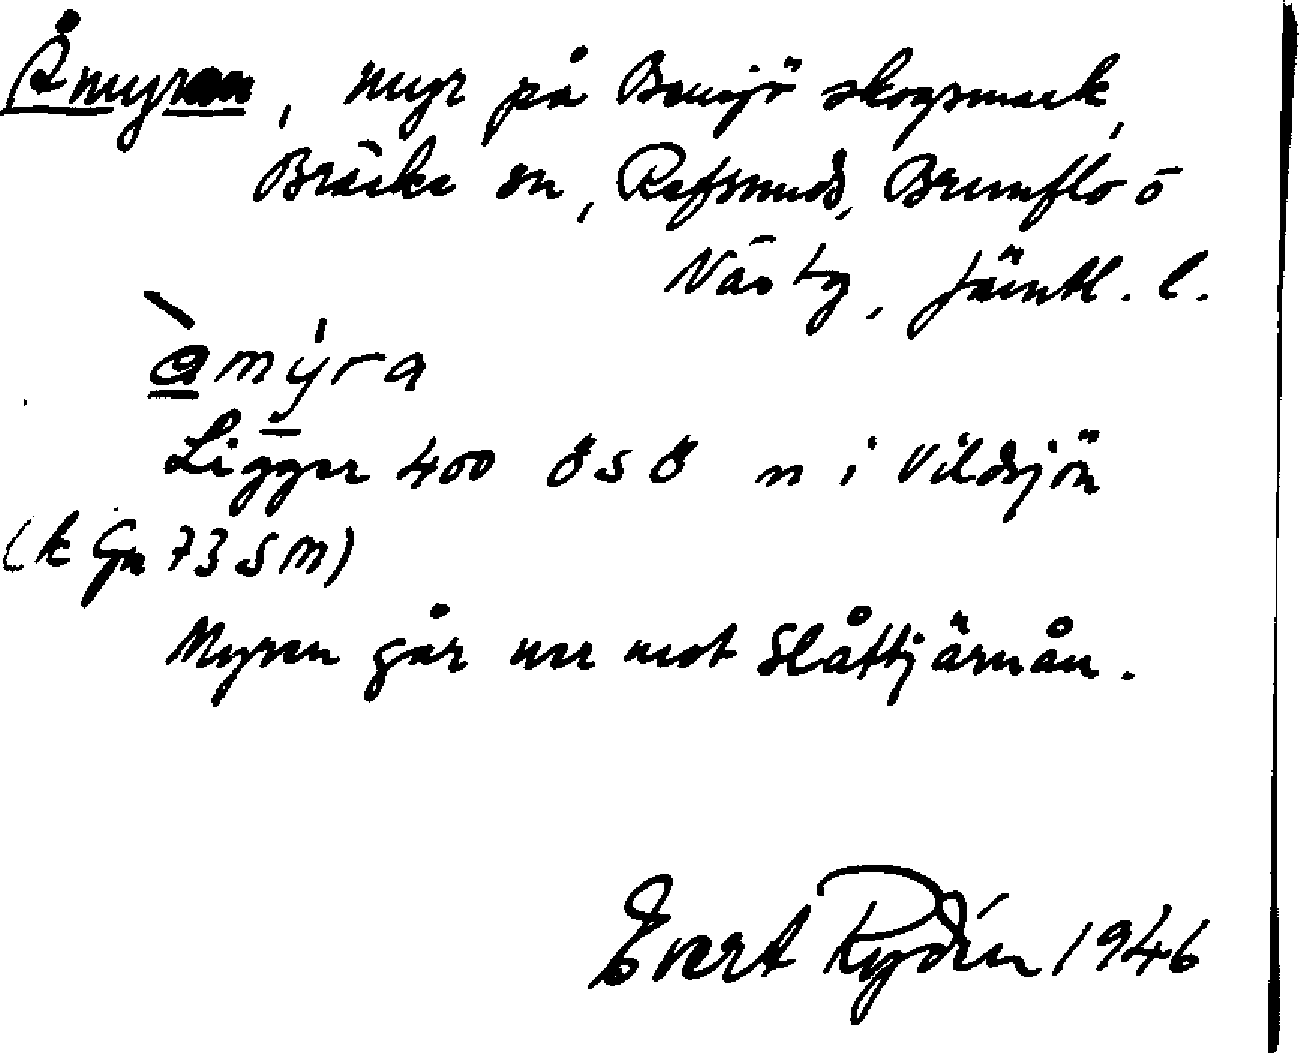 Åmyren, myr på Bensjö skogsmark,
Bräcke sn, Refsunds, Brunflo o
Näs tg, Jämtl. l.
àmýra
Ligger 400 ÖSÖ n i Vildsjön
(k Gn 73 SM)
Myren går ner mot Slåttjärnån.
Evert Rydén 1946